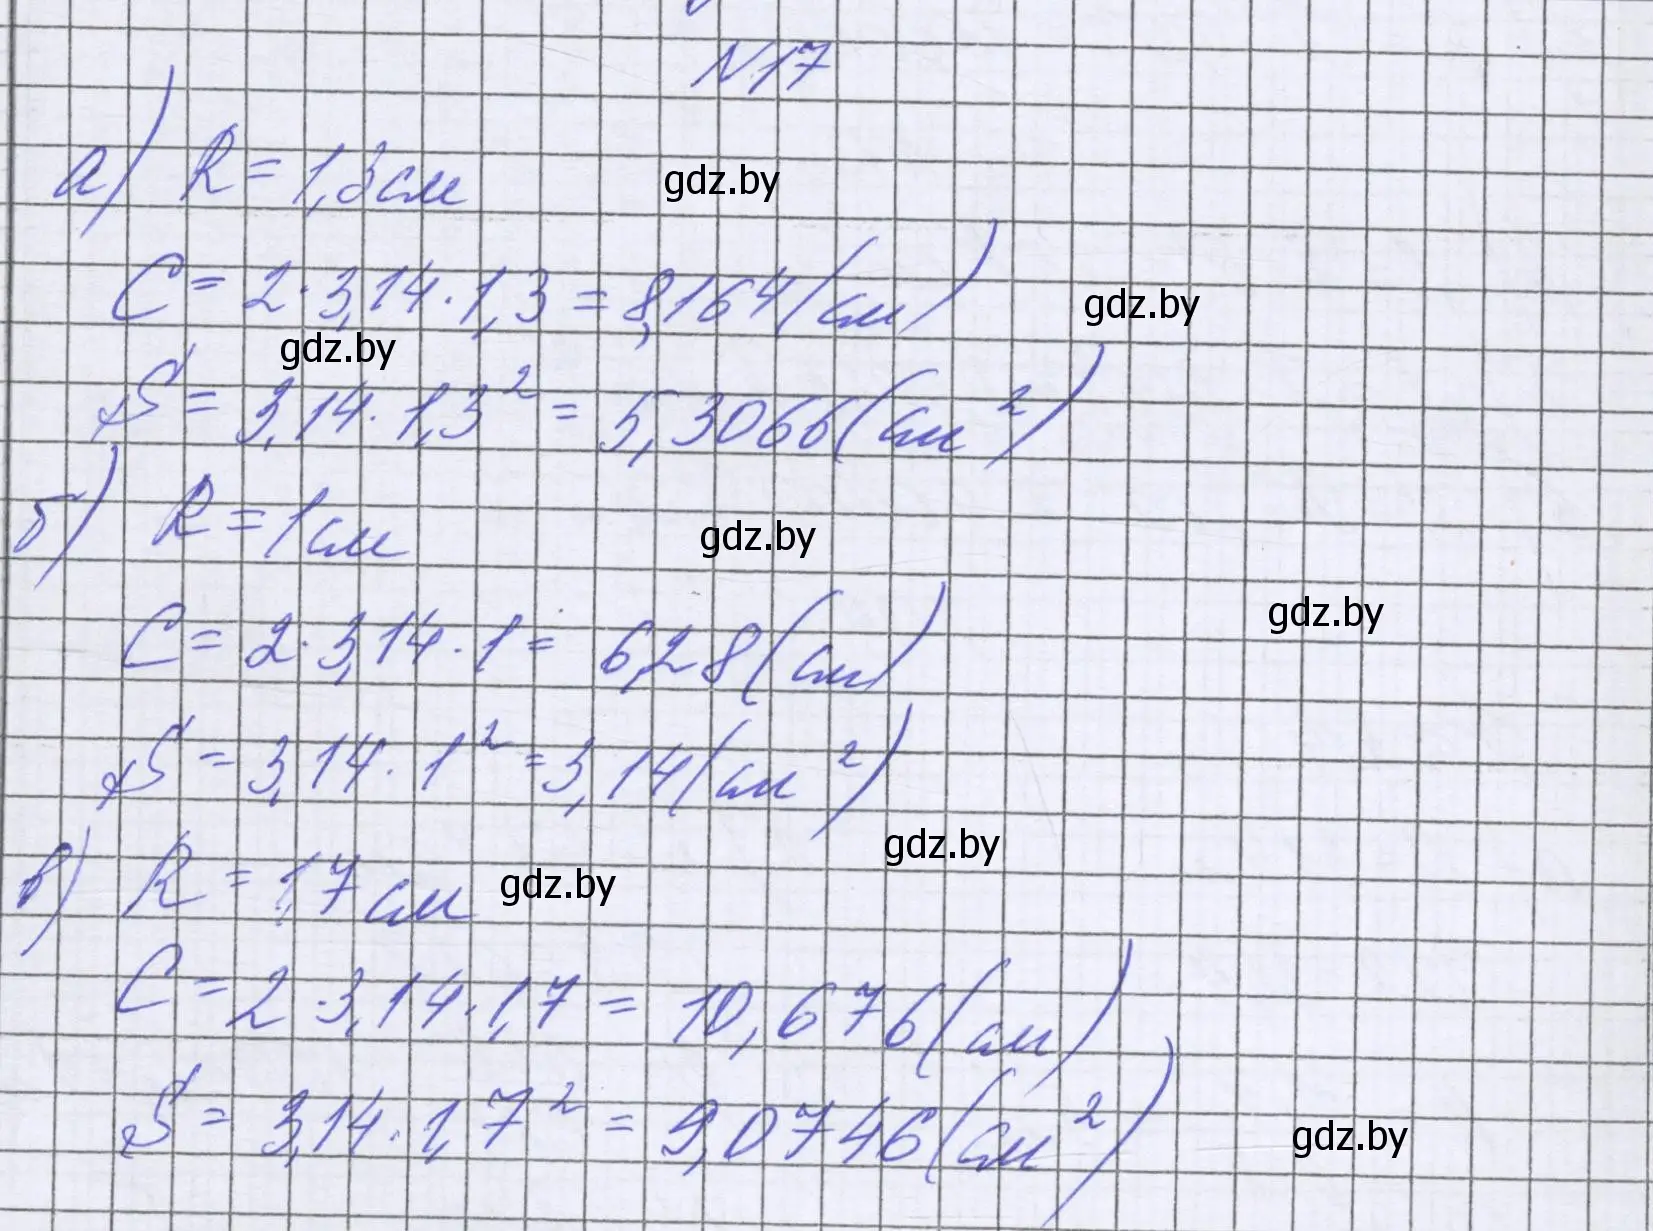 N17
а) R = 1,3 см
gdz.by
C = 2·3,14·1,3 = 8,164 (см)
gdz.by
gdz.by
S = 3,14·1,3² = 5,3066 (см²)
б) R = 1 см
gdz.by
gdz.by
C = 2·3,14·1 = 6,28 (см)
S = 3,14·1² = 3,14 (см²)
gdz.by
в) R = 1,7 см
gdz.by
C = 2·3,14·1,7 = 10,676 (см)
S = 3,14·1,7² = 9,0746 (см²)
gdz.by